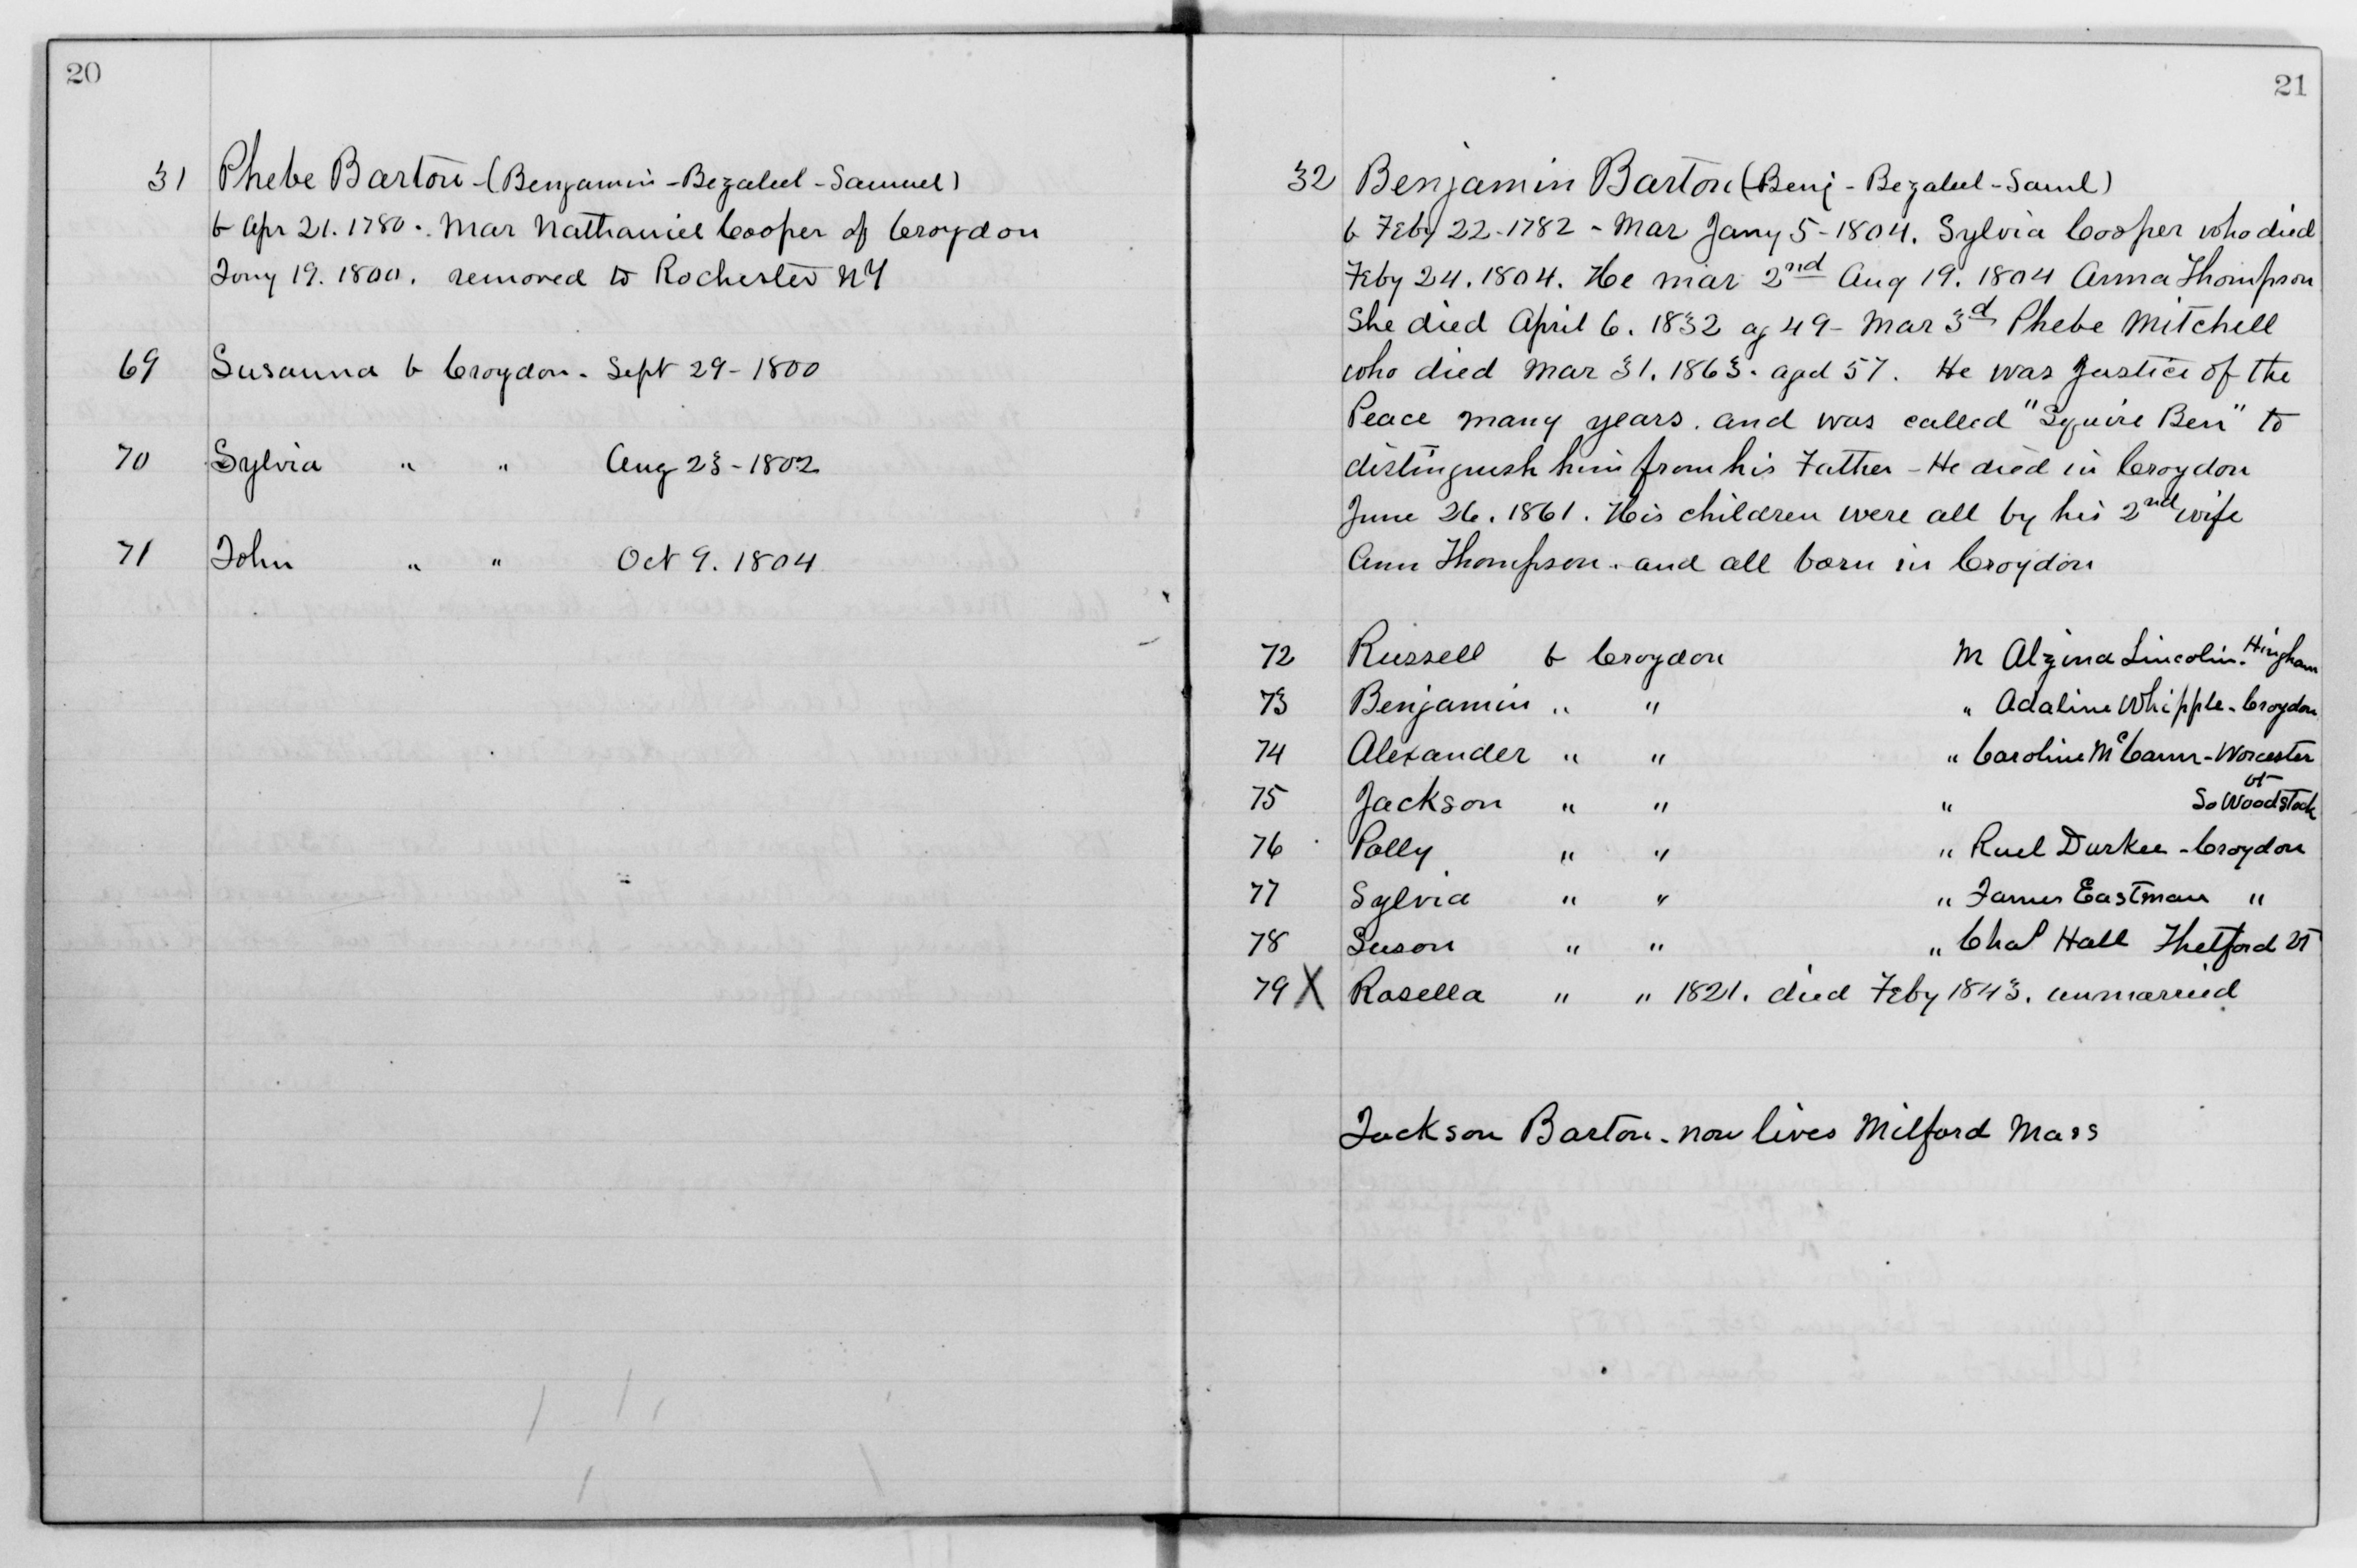 20
31 Phebe Barton - (Benjamin - Bezaleel - Samuel)
b Apr 21. 1780. Mar Nathaniel Cooper of Croydon
Jany 19. 1800. removed to Rochester NY
69 Susanna b Croydon - Sept 29 - 1800
70 Sylvia " " Aug 23 - 1802
71 John " " Oct 9. 1804
21
32 Benjamin Barton (Benj - Bezaleel - Saml)
b Feby 22 - 1782 - Mar Jany 5 - 1804. Sylvia Cooper who died
Feby 24. 1804. He mar 2nd Aug 19. 1804 Anna Thompson
She died April 6. 1832 ag 49 - Mar 3d Phebe Mitchell
who died Mar 31. 1863. aged 57. He was Justice of the
Peace many years. and was called "Squire Ben" to
distinguish him from his Father - He died in Croydon
June 26. 1861. His children were all by his 2nd wife
Ann Thompson. and all born in Croydon
72 Russell b Croydon M Alzina Lincoln. Hingham
73 Benjamin " " " Adaline Whipple - Croydon
74 Alexander " " " Caroline McCann - Worcester
75 Jackson " " " So Woodstock Vt
76 Polly " " " Ruel Durkee - Croydon
77 Sylvia " " " James Eastman "
78 Suson " " " Chas Hall Thetford Vt
79 X Rosella " " 1821. died Feby 1843. unmarried
Jackson Barton - now lives Milford Mass